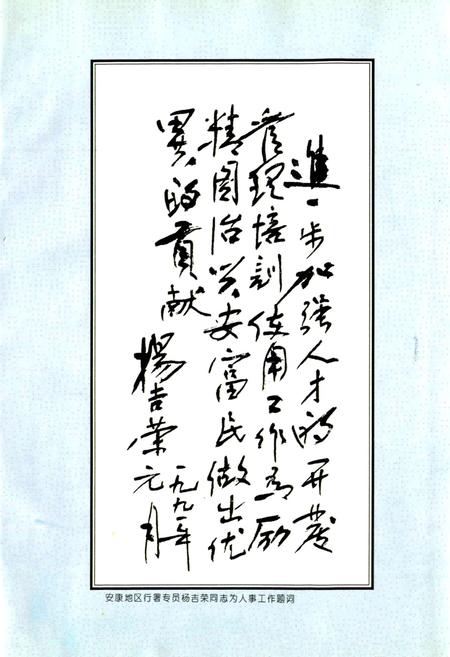 進一步加强人才的开发
管理培訓使用工作为励
精图治兴安富民做出优
異的貢献
楊吉荣
一九九一年
元月
安康地区行署专员杨吉荣同志为人事工作题词